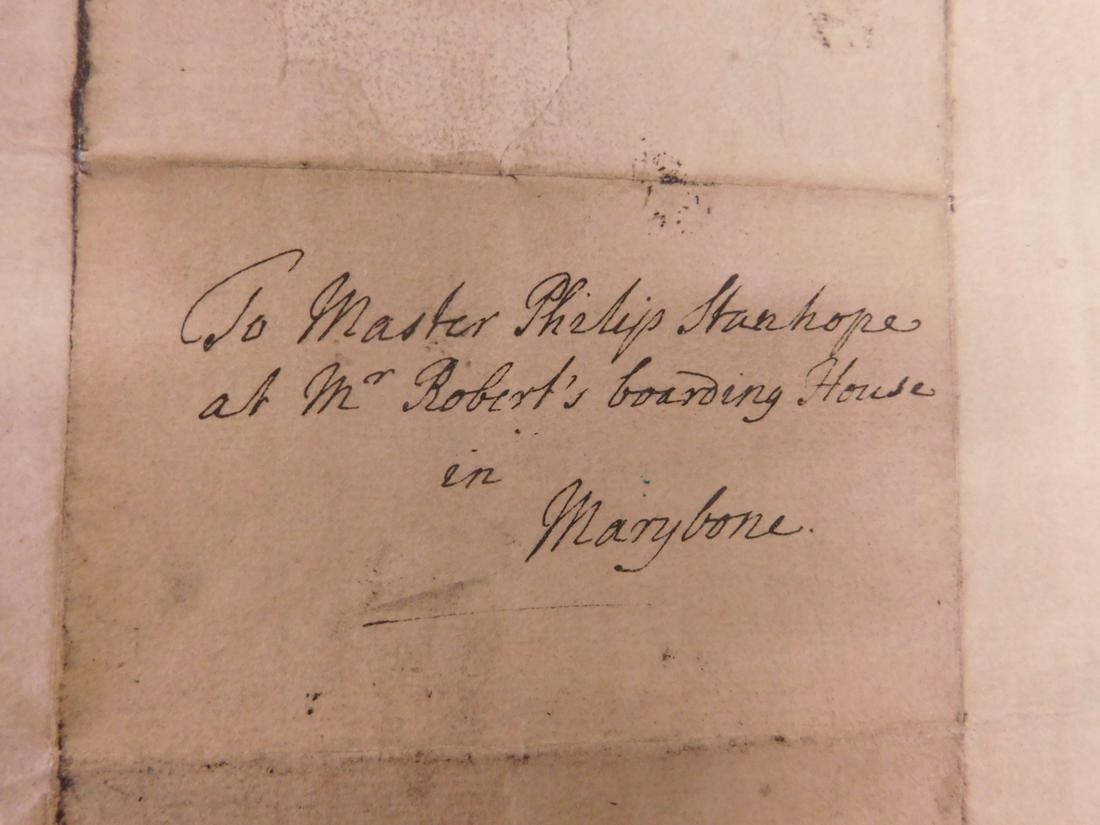 To Master Philip Stanhope
at Mr Robert's boarding House
in
Marybone.